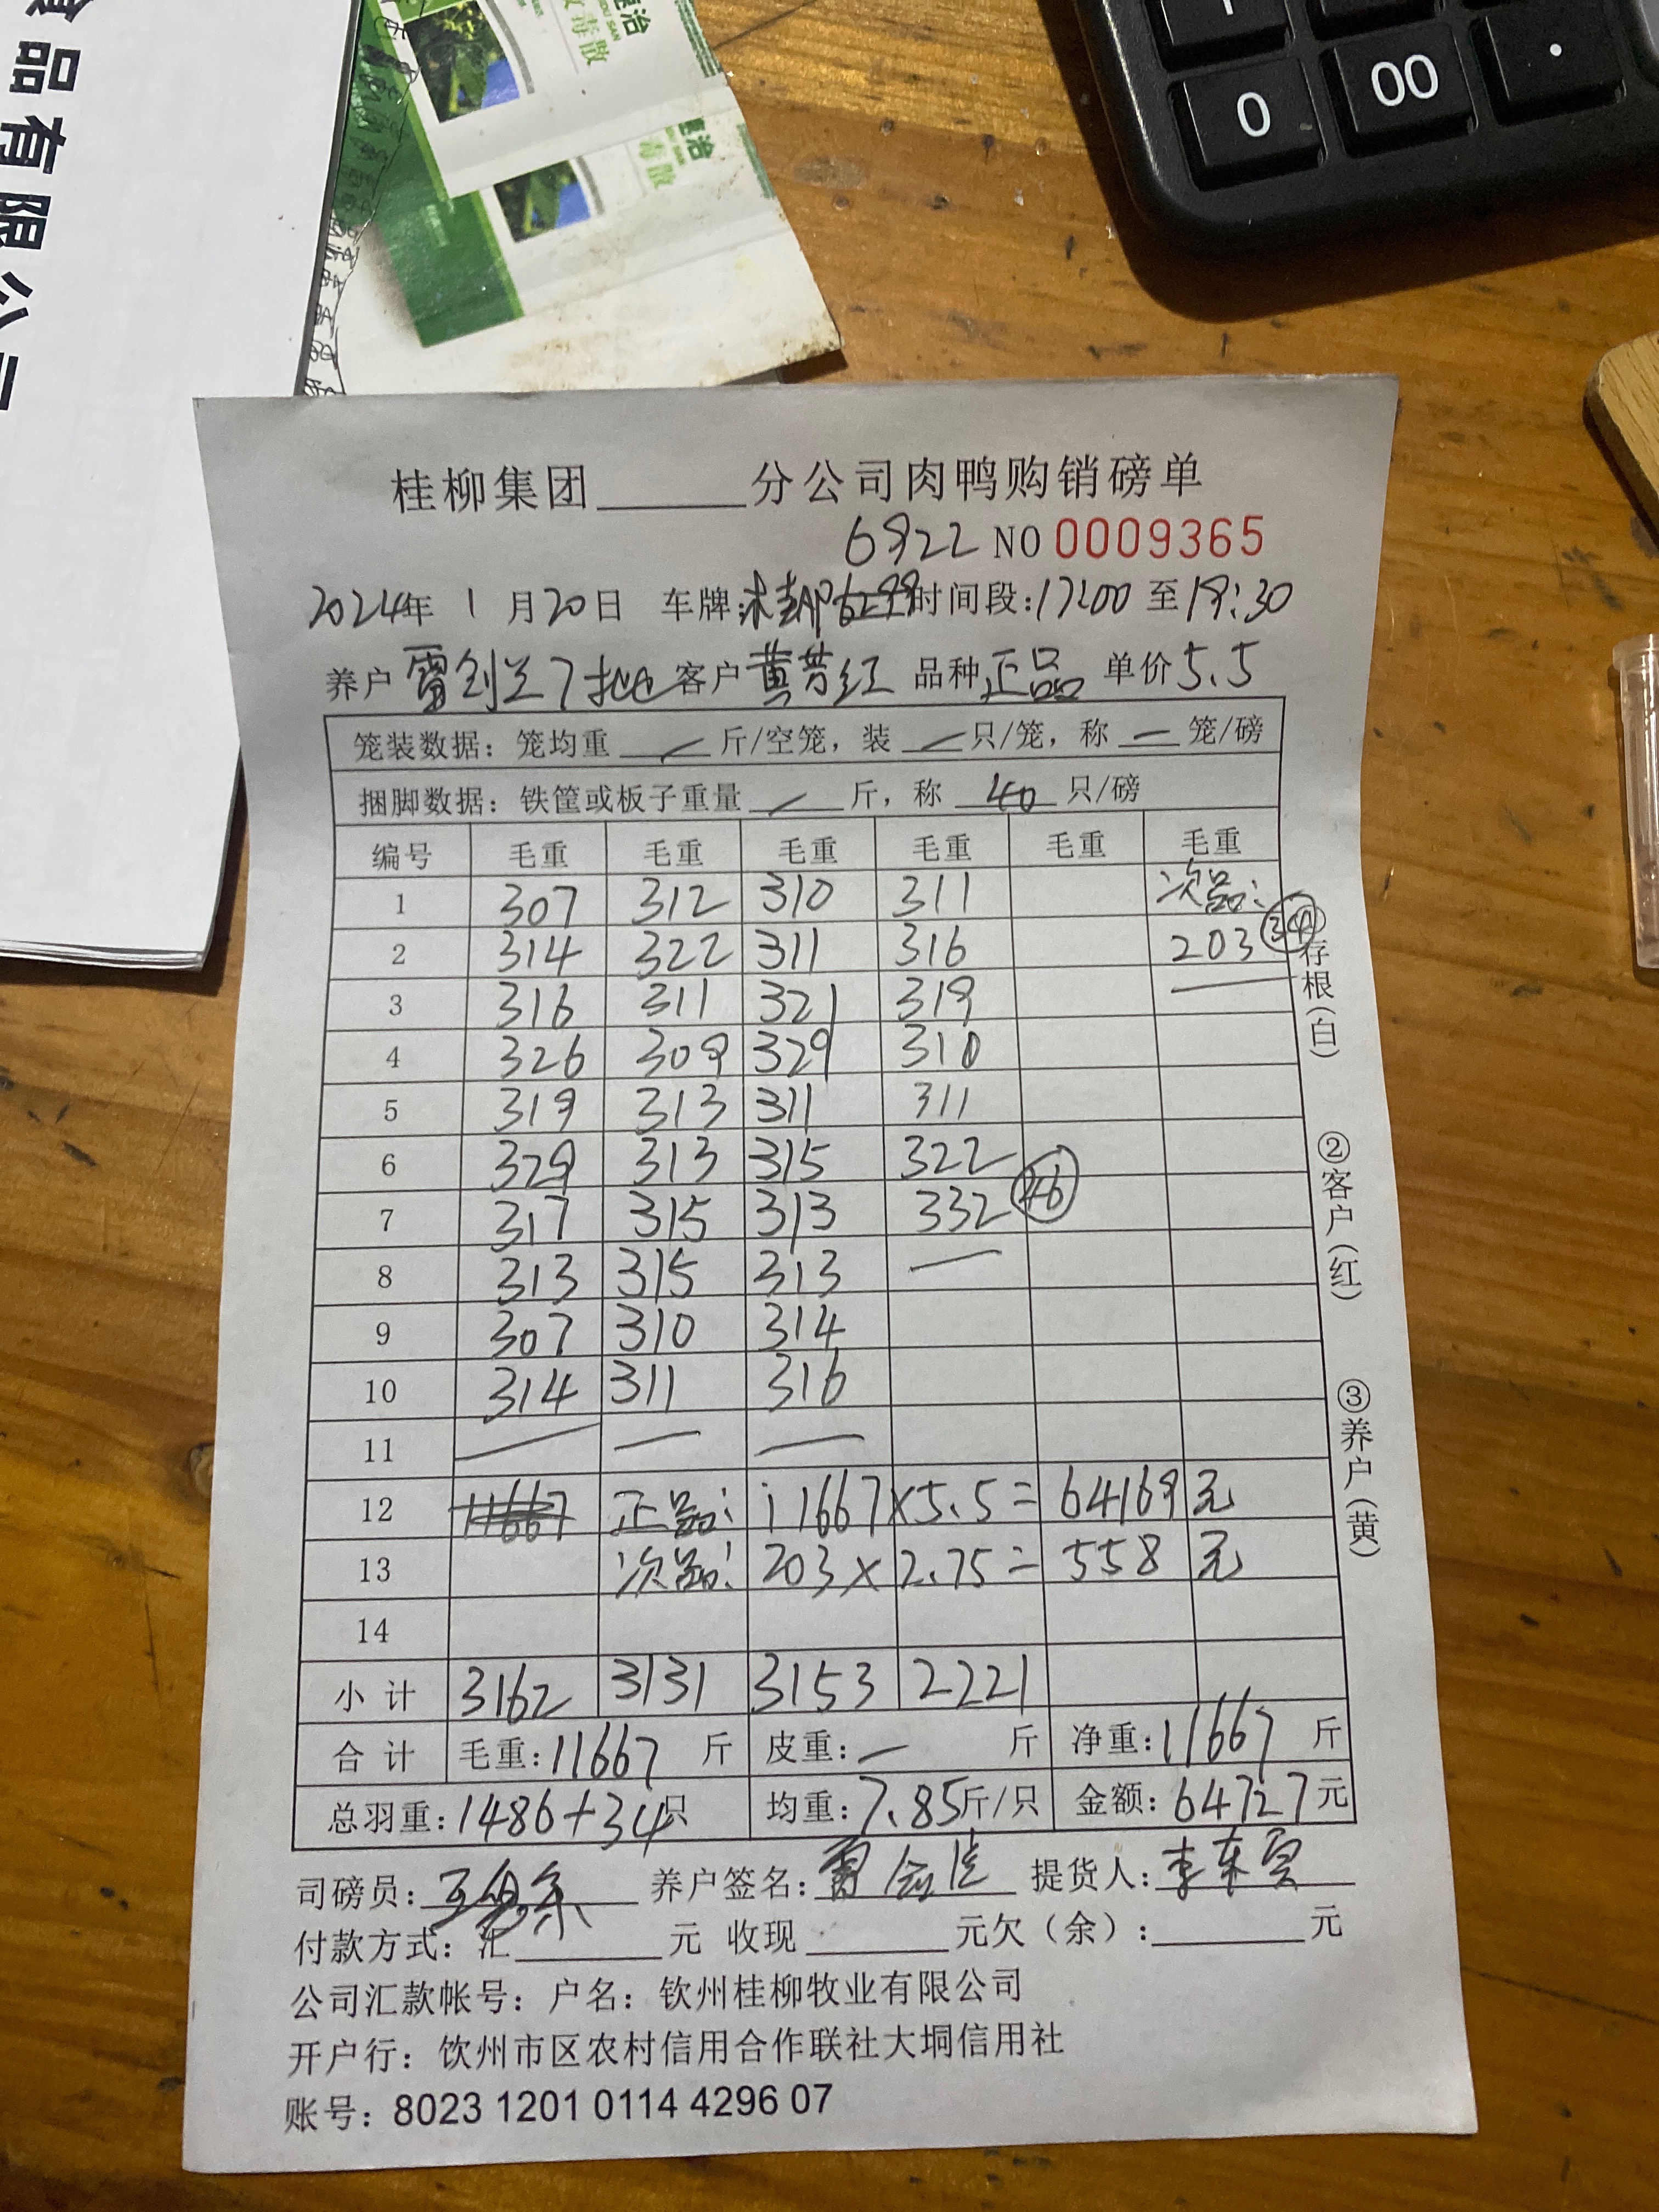 食品有限公司
惠治
败毒散
惠治
毒散
0 00 .
桂柳集团______分公司肉鸭购销磅单
6822 NO 0009365
2024年 1 月20日 车牌: 时间段:17:00 至18:30
养户 雷剑兰7批 客户 黄芳红 品种 正品 单价5.5
笼装数据: 笼均重 — 斤/空笼, 装 — 只/笼, 称 — 笼/磅
捆脚数据: 铁筐或板子重量 — 斤, 称 40 只/磅
编号 毛重 毛重 毛重 毛重 毛重 毛重
1 307 312 310 311 次品:
2 314 322 311 316 203 34
3 316 311 321 318 —
4 326 309 329 310
5 319 313 311 311
6 329 313 315 322
7 317 315 313 332 46
8 313 315 313 —
9 307 310 314
10 314 311 316
11 — — —
12 11667 正品: 11667×5.5= 64168元
13 次品: 203×2.75= 558元
14
小计 3162 3131 3153 2221
合计 毛重:11667 斤 皮重:— 斤 净重:11667 斤
总羽重:1486+34只 均重:7.85斤/只 金额:64727元
司磅员: 养户签名: 提货人:李东
付款方式: 汇______元 收现______元欠(余):______元
公司汇款帐号: 户名: 钦州桂柳牧业有限公司
开户行: 钦州市区农村信用合作联社大垌信用社
账号: 8023 1201 0114 4296 07
存根(白)
②客户(红)
③养户(黄)